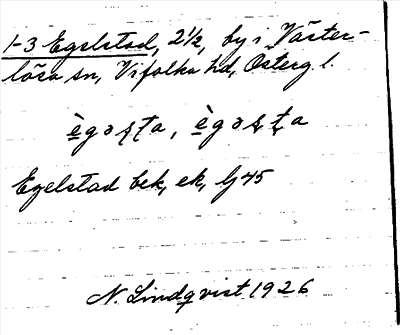 1-3 Egelstad, 2½, by i Väster-
lösa sn, Vifolka hd, Österg l.
ègəʂʈa, ègəʂʈa
Egelstad bek, ek, lj 45
N. Lindqvist 1926